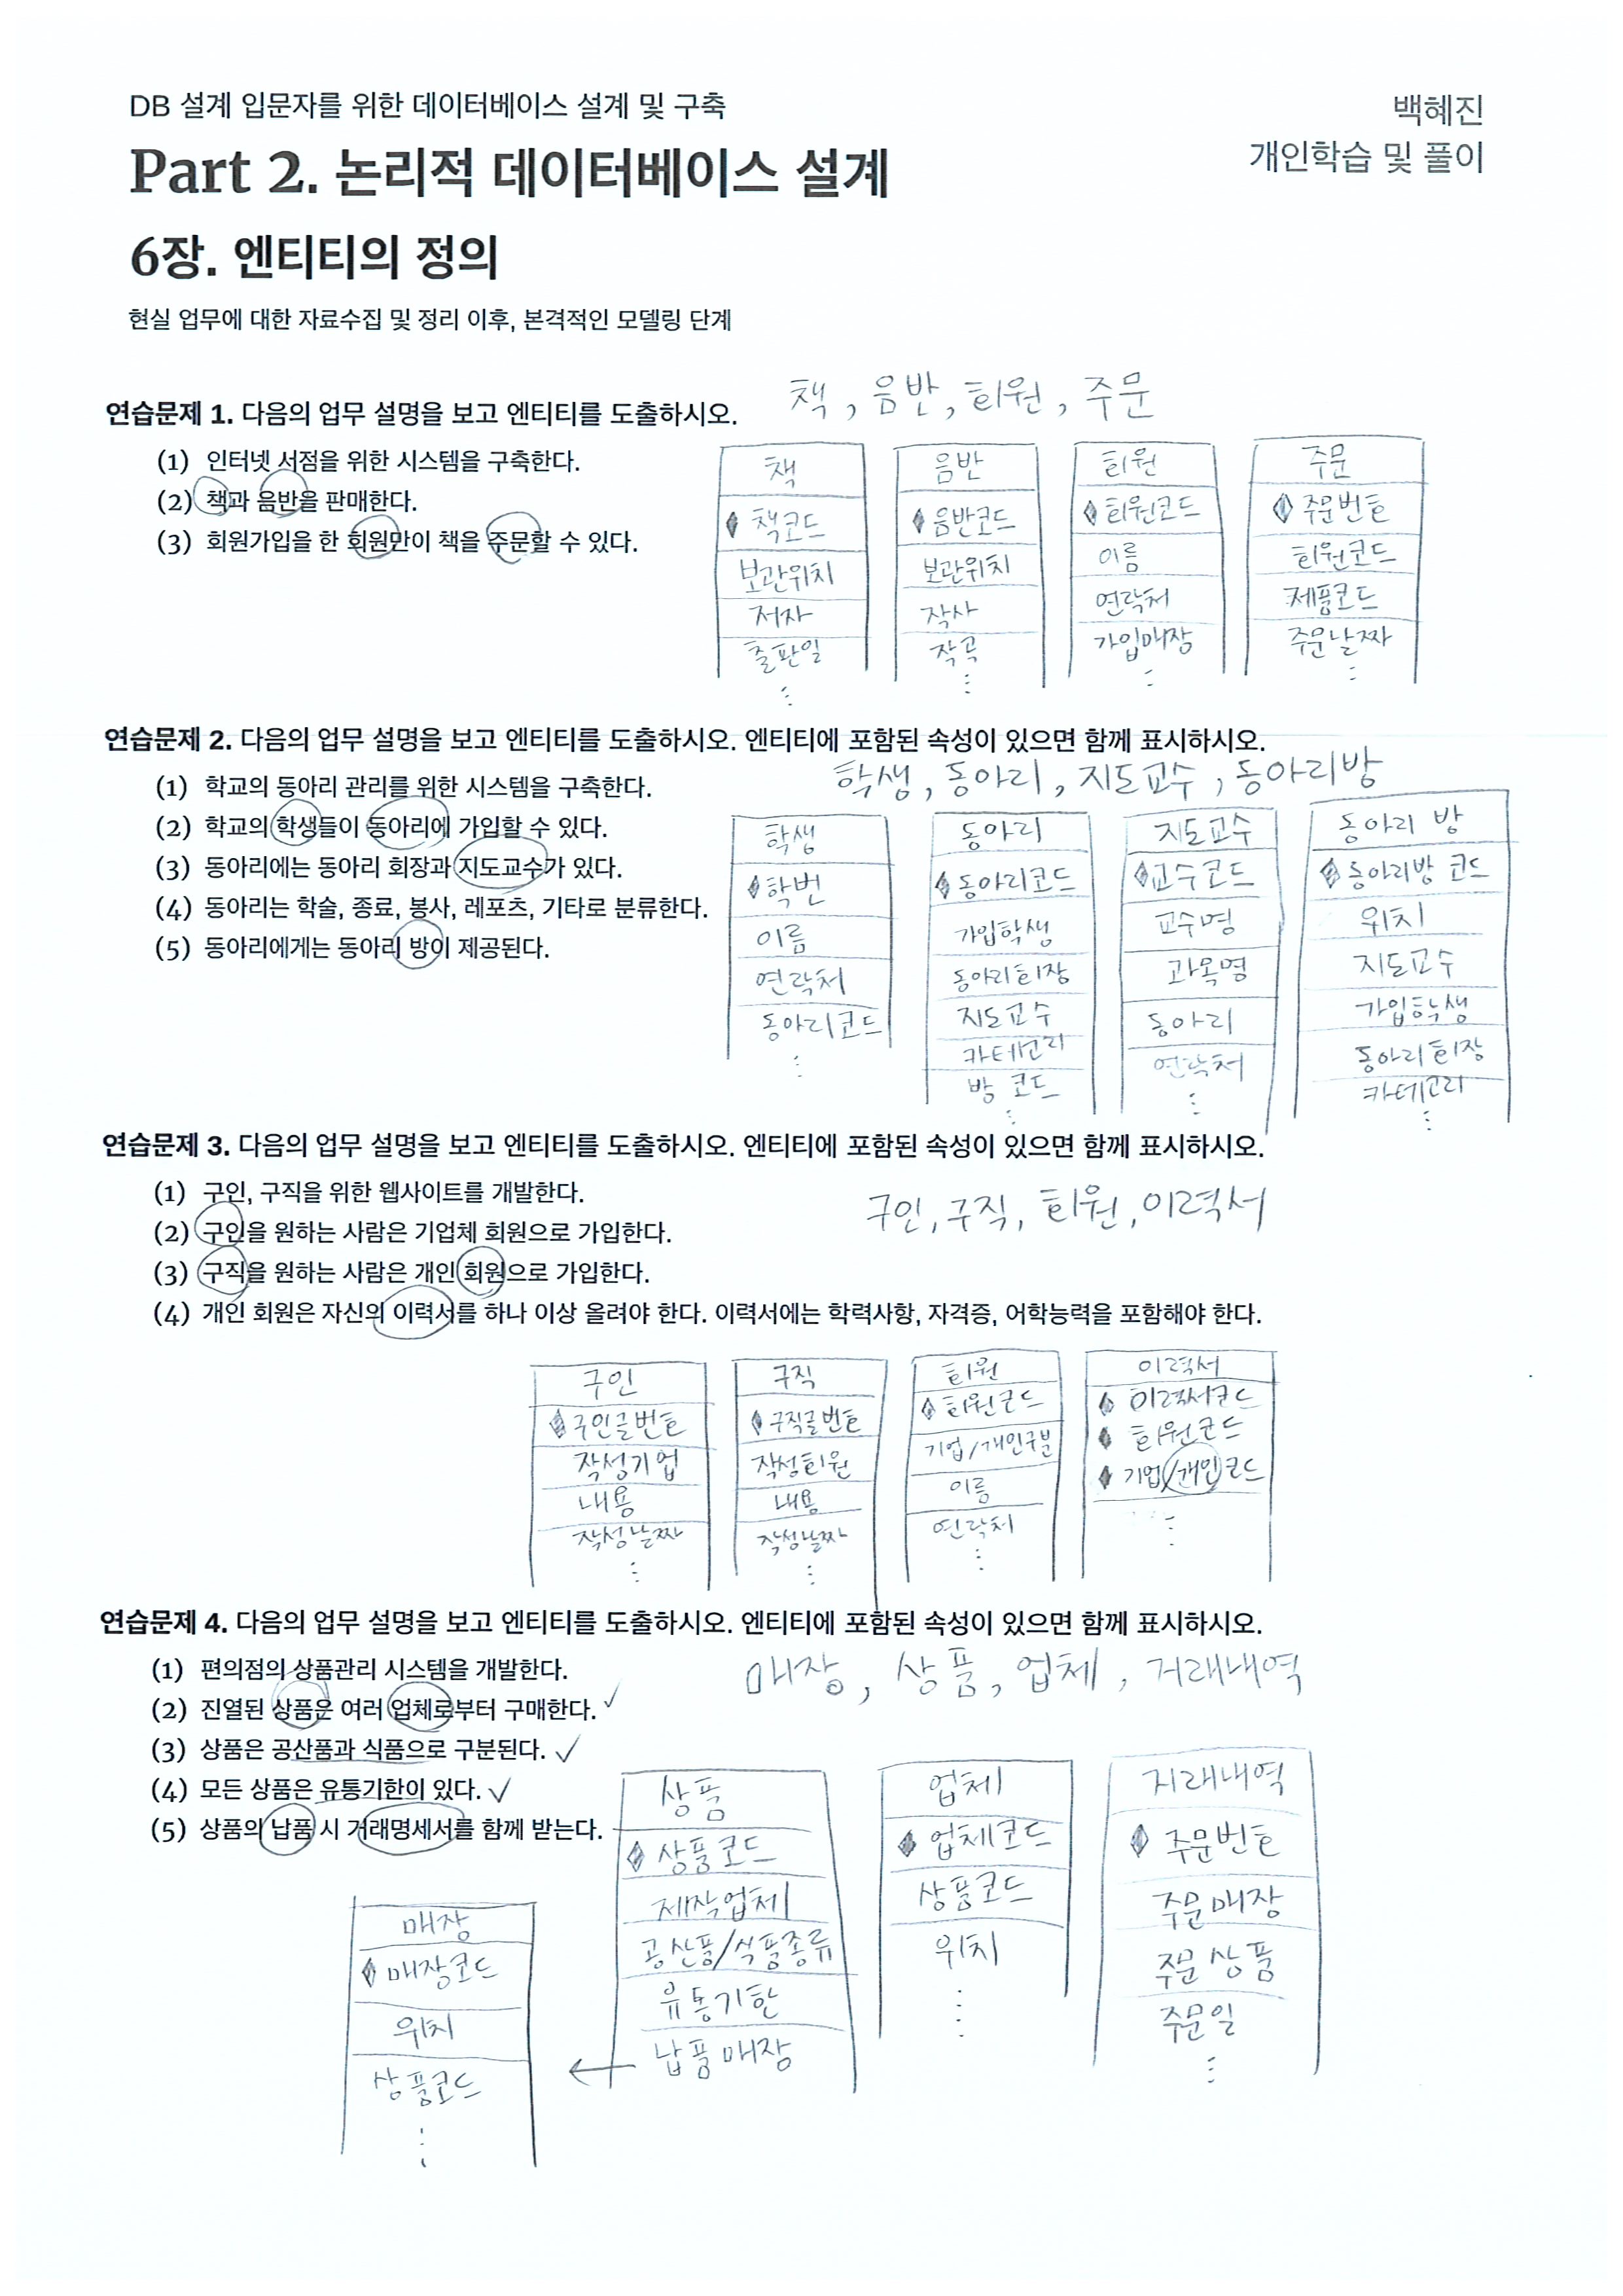 DB 설계 입문자를 위한 데이터베이스 설계 및 구축
백혜진
Part 2. 논리적 데이터베이스 설계
개인학습 및 풀이
6장. 엔티티의 정의
현실 업무에 대한 자료수집 및 정리 이후, 본격적인 모델링 단계
책, 음반, 회원, 주문
연습문제 1. 다음의 업무 설명을 보고 엔티티를 도출하시오.
(1) 인터넷 서점을 위한 시스템을 구축한다.
(2) 책과 음반을 판매한다.
(3) 회원가입을 한 회원만이 책을 주문할 수 있다.
책
책코드
보관위치
저자
출판일
음반
음반코드
보관위치
작사
작곡
회원
회원코드
이름
연락처
가입매장
주문
주문번호
회원코드
제품코드
주문날짜
연습문제 2. 다음의 업무 설명을 보고 엔티티를 도출하시오. 엔티티에 포함된 속성이 있으면 함께 표시하시오.
학생, 동아리, 지도교수, 동아리방
(1) 학교의 동아리 관리를 위한 시스템을 구축한다.
(2) 학교의 학생들이 동아리에 가입할 수 있다.
(3) 동아리에는 동아리 회장과 지도교수가 있다.
(4) 동아리는 학술, 종료, 봉사, 레포츠, 기타로 분류한다.
(5) 동아리에게는 동아리 방이 제공된다.
학생
학번
이름
연락처
동아리코드
동아리
동아리코드
가입학생
동아리회장
지도교수
카테고리
방 코드
지도교수
교수코드
교수명
과목명
동아리
연락처
동아리 방
동아리방 코드
위치
지도교수
가입학생
동아리회장
카테고리
연습문제 3. 다음의 업무 설명을 보고 엔티티를 도출하시오. 엔티티에 포함된 속성이 있으면 함께 표시하시오.
(1) 구인, 구직을 위한 웹사이트를 개발한다.
구인, 구직, 회원, 이력서
(2) 구인을 원하는 사람은 기업체 회원으로 가입한다.
(3) 구직을 원하는 사람은 개인 회원으로 가입한다.
(4) 개인 회원은 자신의 이력서를 하나 이상 올려야 한다. 이력서에는 학력사항, 자격증, 어학능력을 포함해야 한다.
구인
구인글번호
작성기업
내용
작성날짜
구직
구직글번호
작성회원
내용
작성날짜
회원
회원코드
기업/개인구분
이름
연락처
이력서
이력서코드
회원코드
기업/개인코드
연습문제 4. 다음의 업무 설명을 보고 엔티티를 도출하시오. 엔티티에 포함된 속성이 있으면 함께 표시하시오.
(1) 편의점의 상품관리 시스템을 개발한다.
매장, 상품, 업체, 거래내역
(2) 진열된 상품은 여러 업체로부터 구매한다.
(3) 상품은 공산품과 식품으로 구분된다.
(4) 모든 상품은 유통기한이 있다.
(5) 상품의 납품 시 거래명세서를 함께 받는다.
매장
매장코드
위치
상품코드
상품
상품코드
제작업체
공산품/식품종류
유통기한
납품매장
업체
업체코드
상품코드
위치
거래내역
주문번호
주문매장
주문상품
주문일